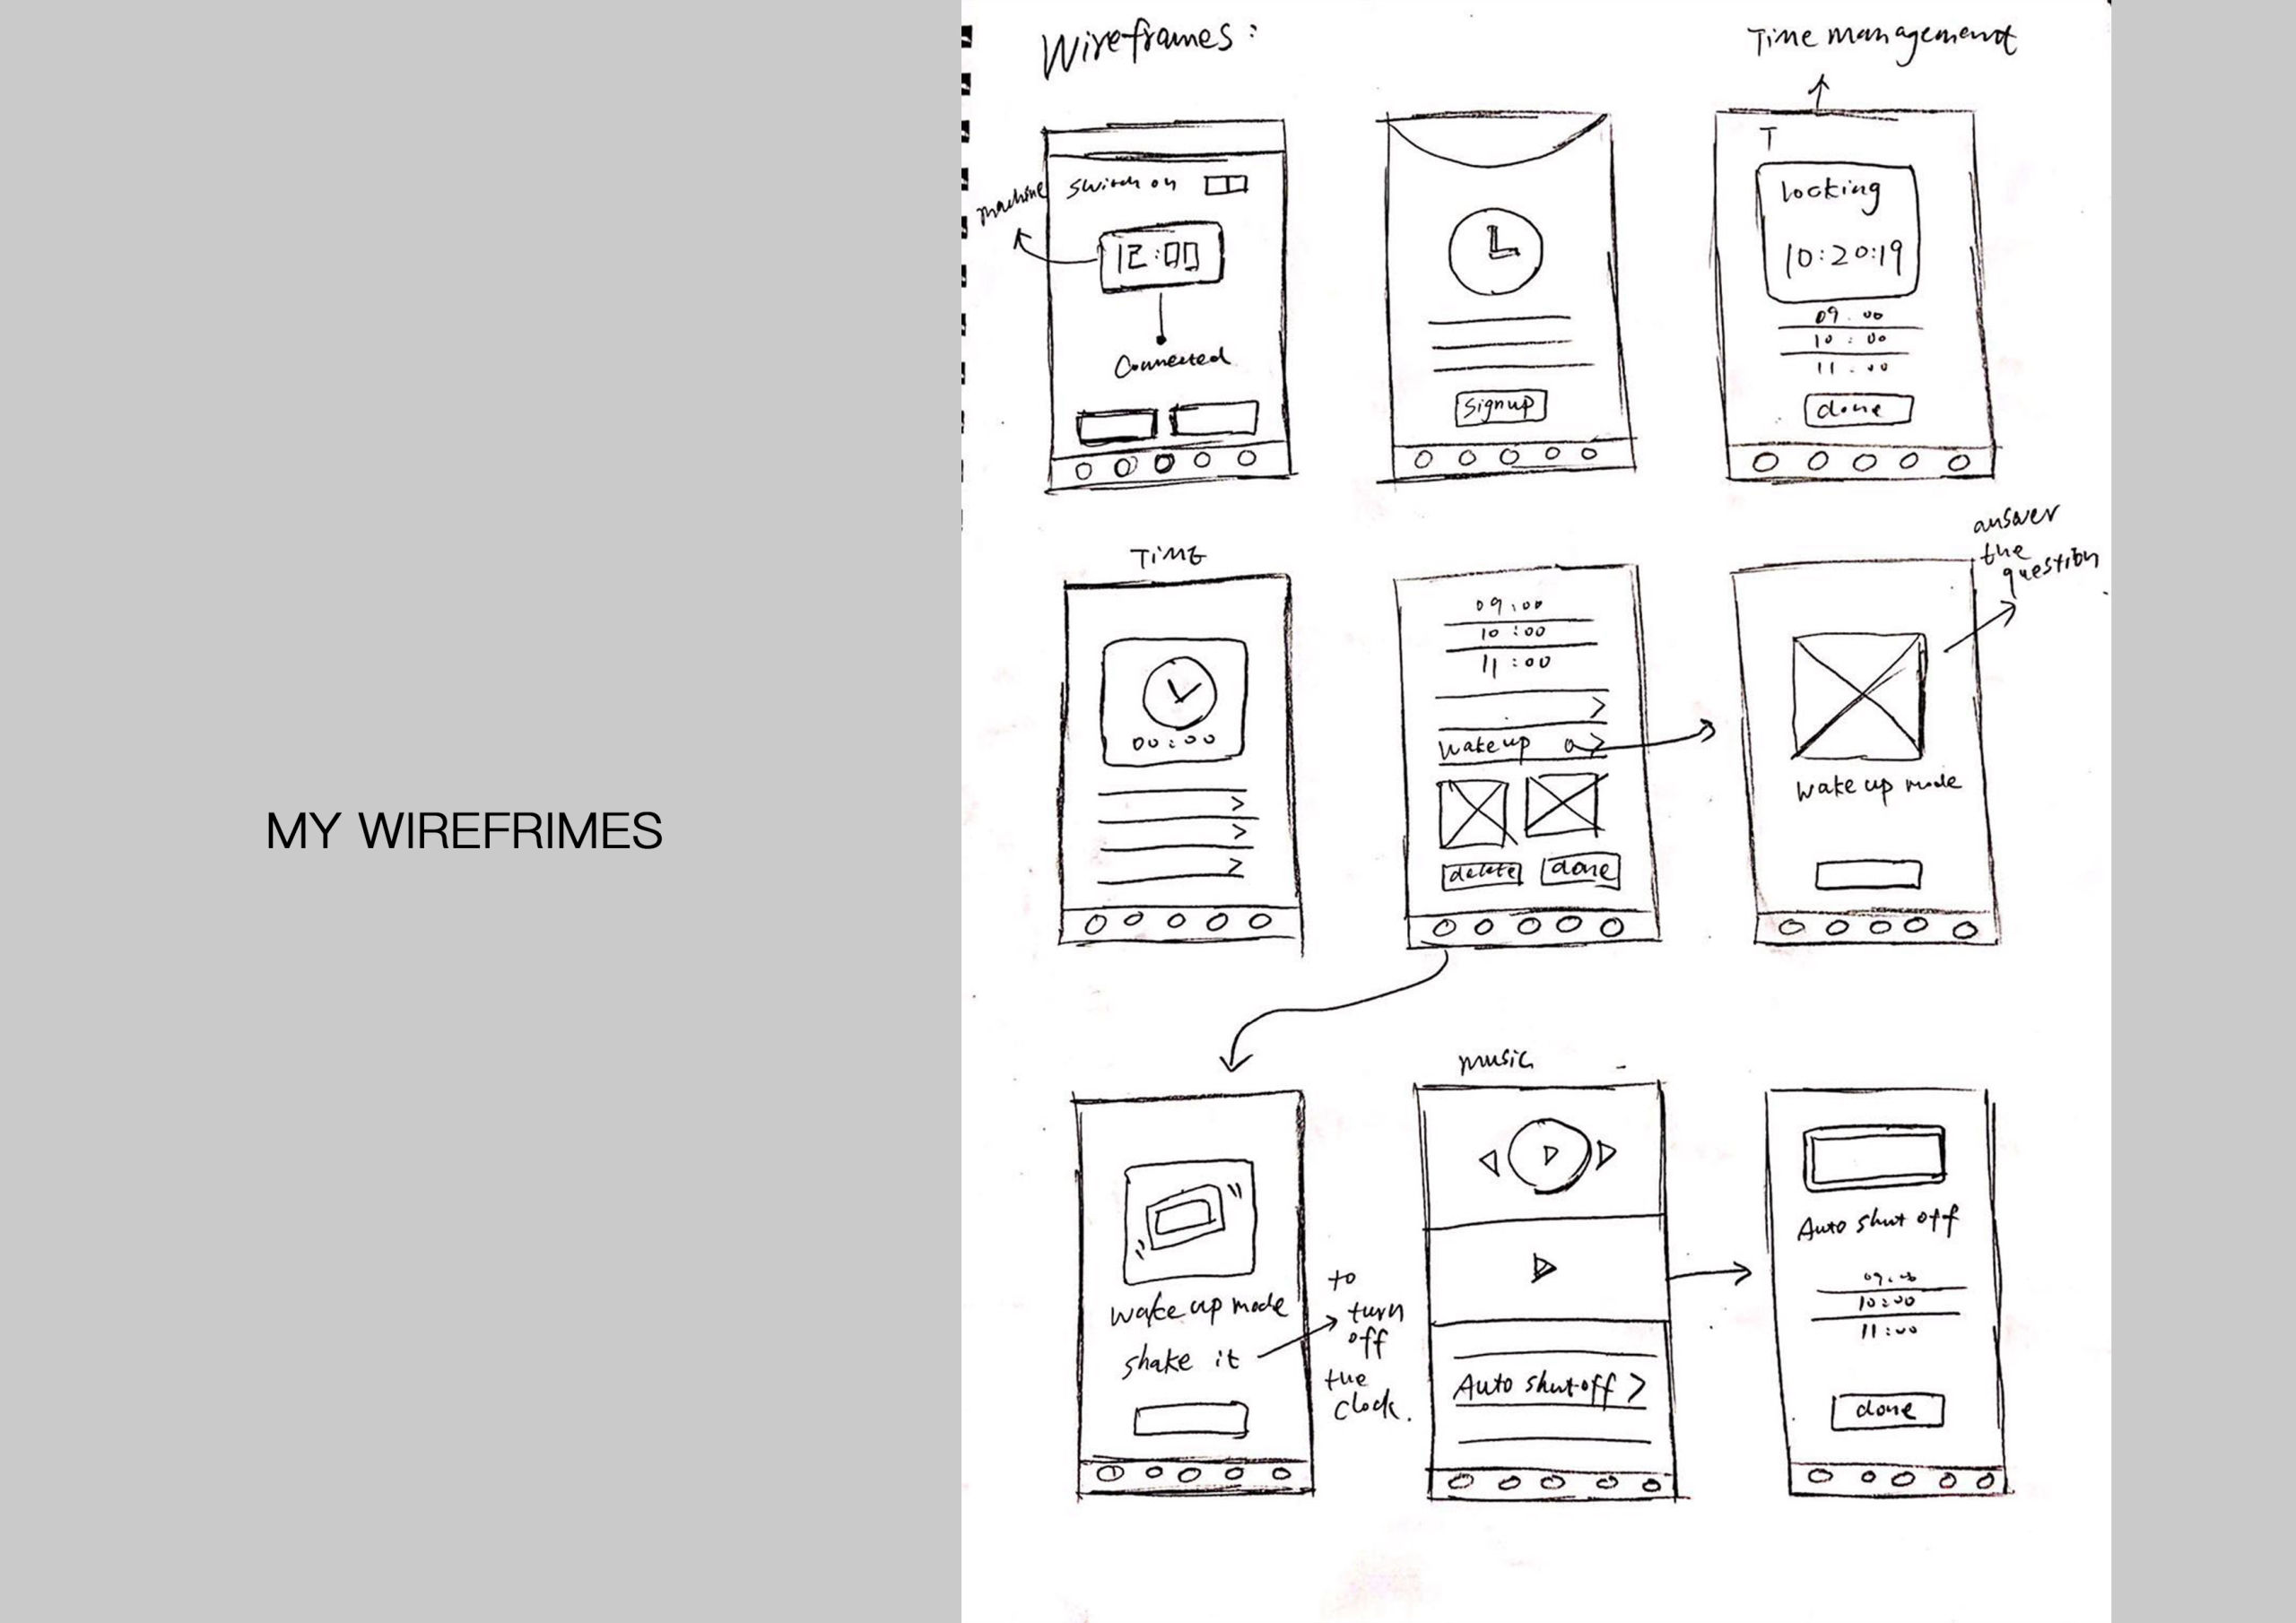 MY WIREFRIMES
Wireframes:
Time management
machine
Switch on
12:00
Connected
Signup
T
locking
10:20:19
09.00
10:00
11.00
done
TiME
00:00
09:00
10:00
11:00
Wake up
delete
done
answer
the
question
Wake up mode
Wake up mode
shake it
to
turn
off
the
clock.
music
Auto shut off
Auto shut off
09.00
10:00
11:00
done